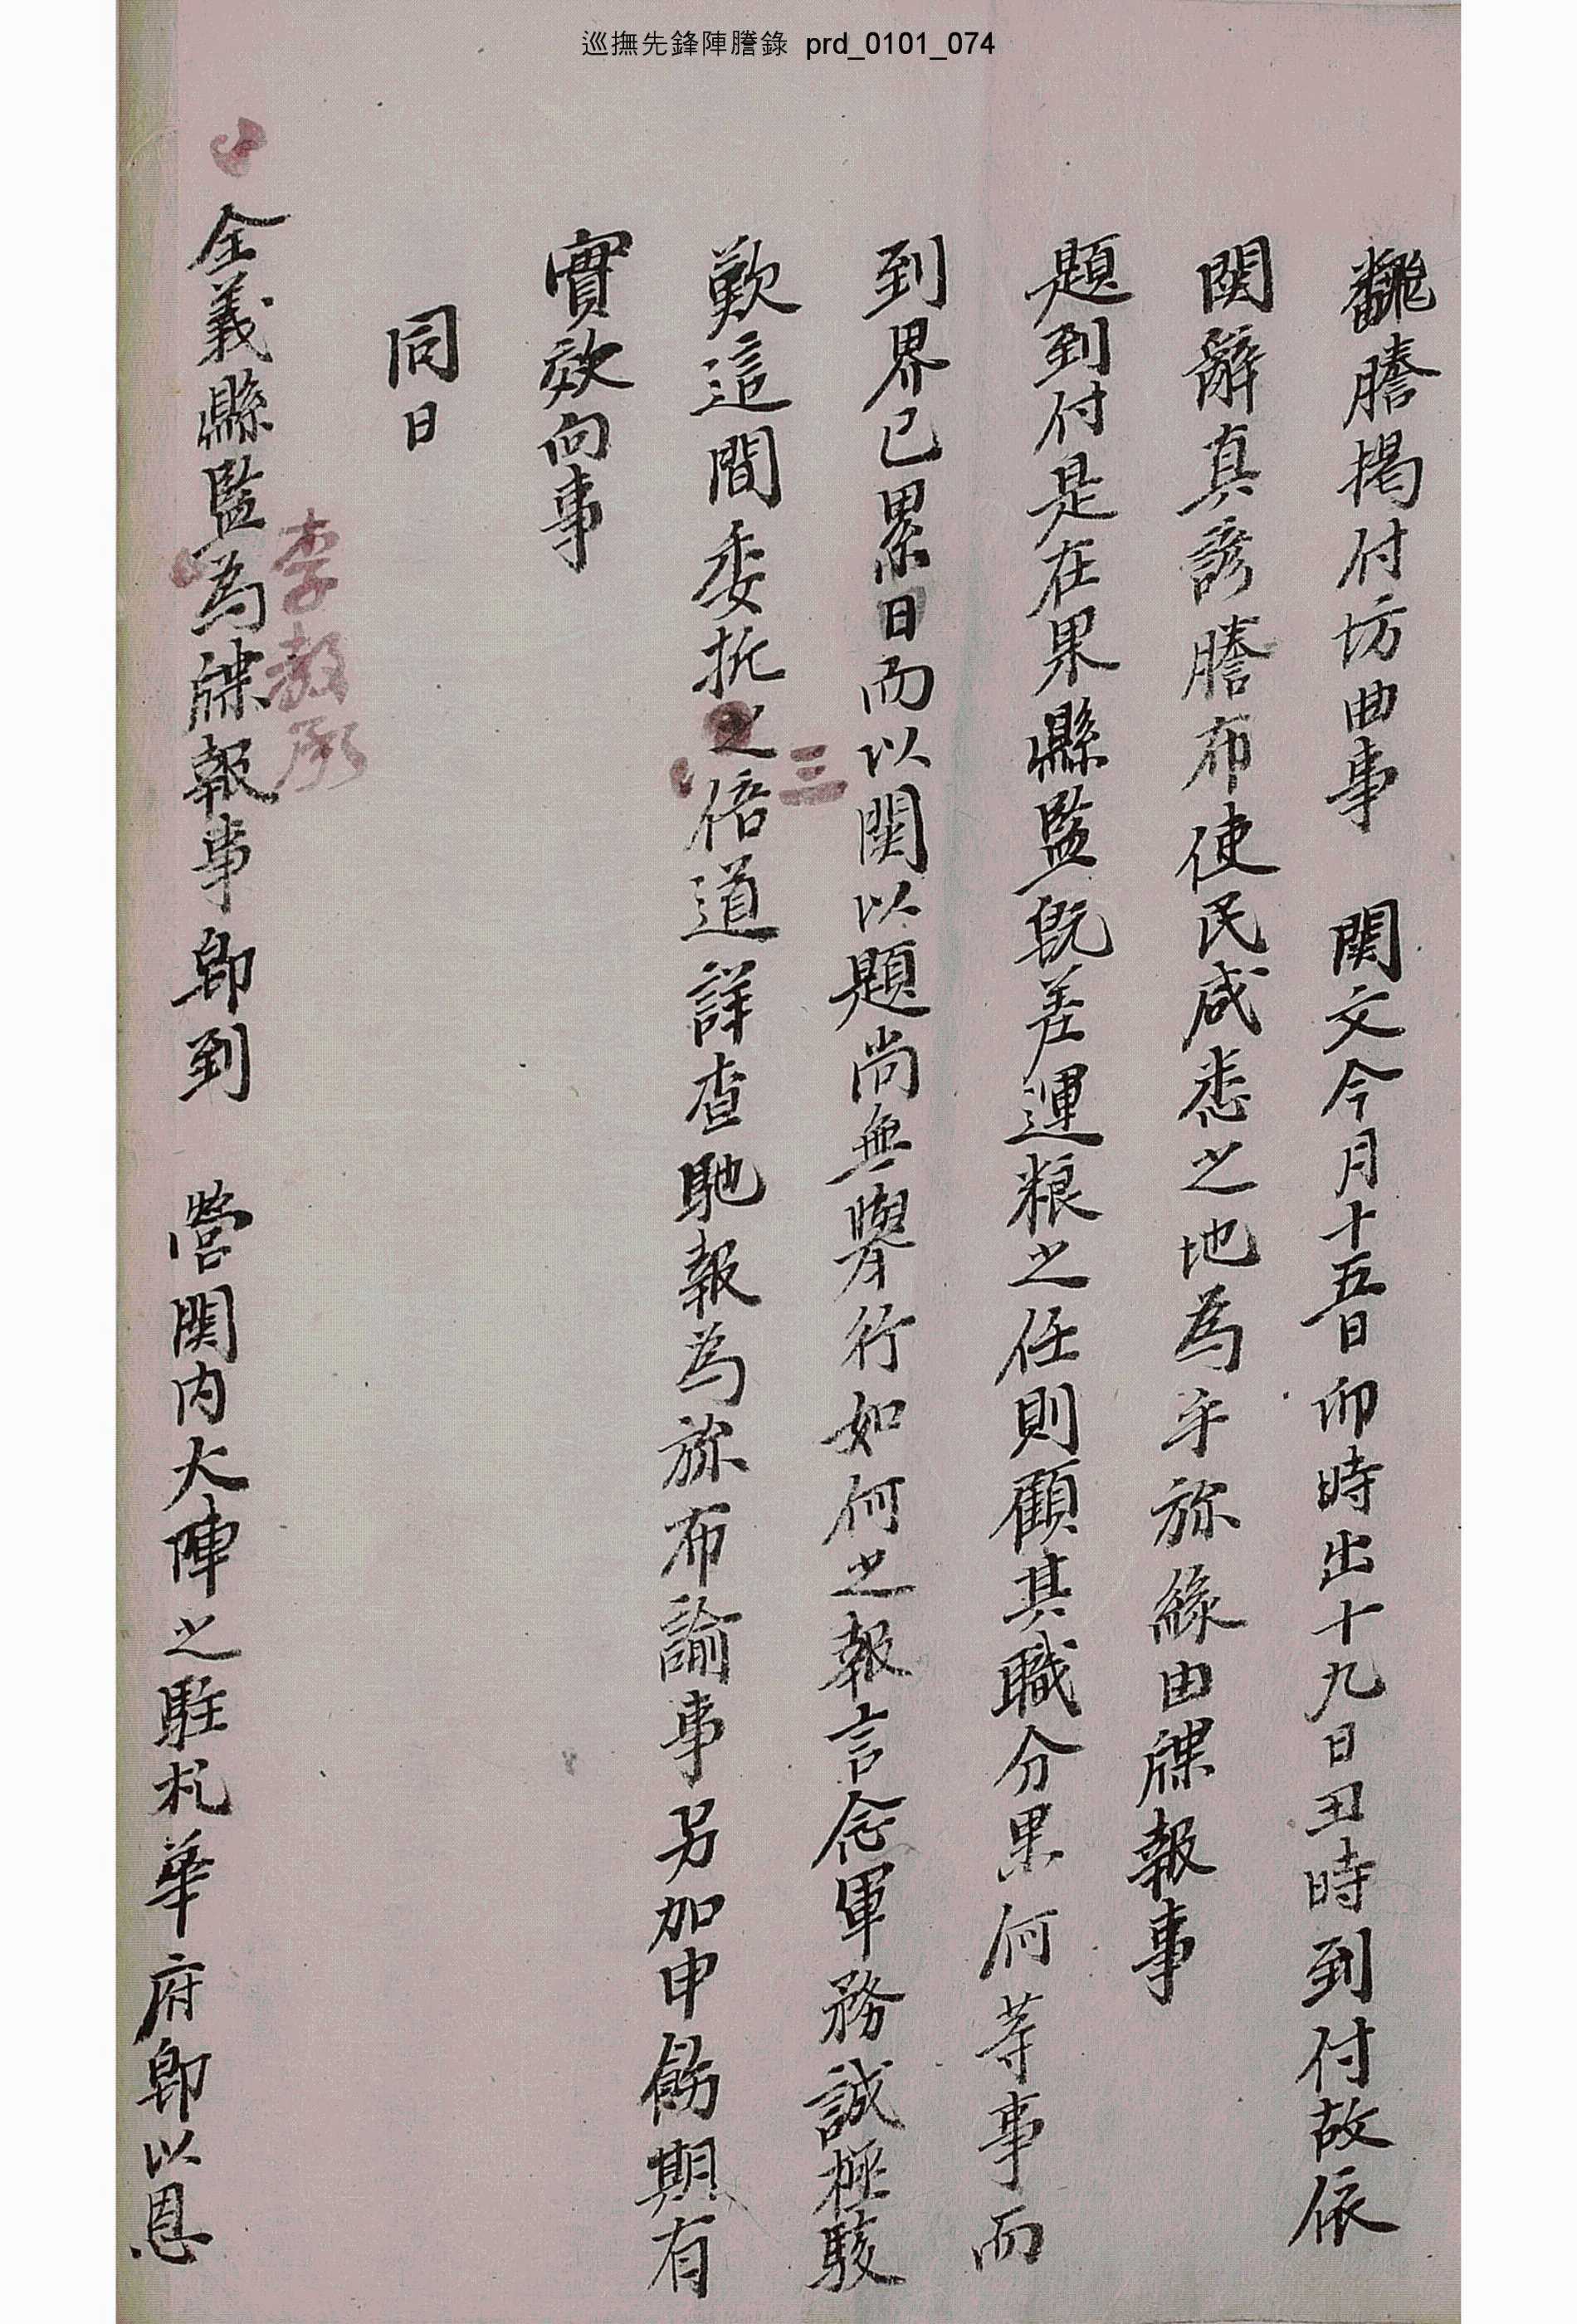 巡撫先鋒陣謄錄 prd_0101_074
飜謄揭付坊曲事 関文今月十五日卯時出十九日丑時到付故依
関辭真諺謄布使民咸悉之地為乎旀緣由牒報事
題到付是在果縣監旣差運粮之任則顧其職分果何等事而
到界已累日而以関以題尚無擧行如何之報言念軍務誠極駭
歎這間委折之倍道詳查馳報為旀布諭事另加申飭期有
實效向事
同日
全義縣監為牒報事卽到 營関內大陣之駐札華府卽以恩
三
李教承